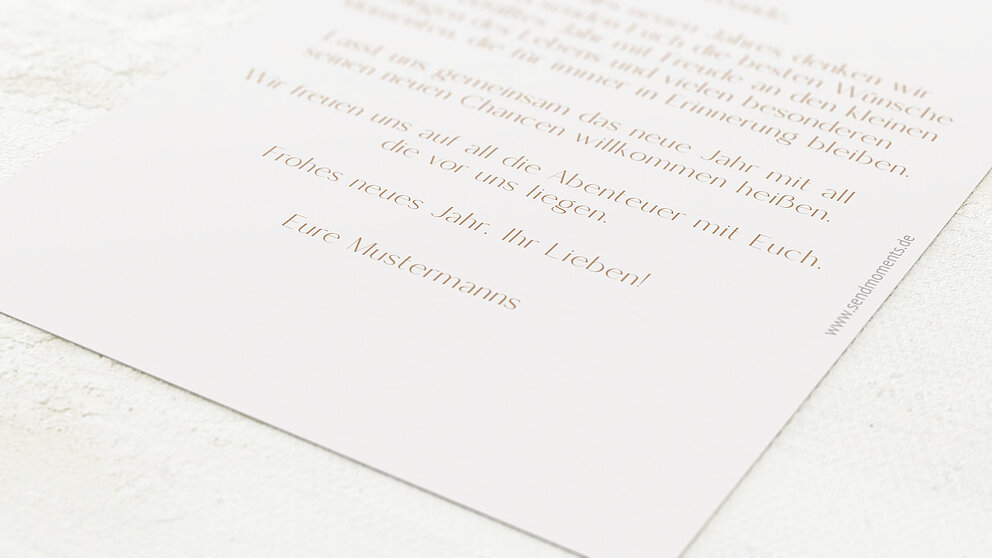 neuen Jahres denken wir
senden Euch die besten Wünsche
Jahr mit Freude an den kleinen
des Lebens und vielen besonderen
Momenten, die für immer in Erinnerung bleiben.
Lasst uns gemeinsam das neue Jahr mit all
seinen neuen Chancen willkommen heißen.
Wir freuen uns auf all die Abenteuer mit Euch,
die vor uns liegen.
Frohes neues Jahr, Ihr Lieben!
Eure Mustermanns
www.sendmoments.de